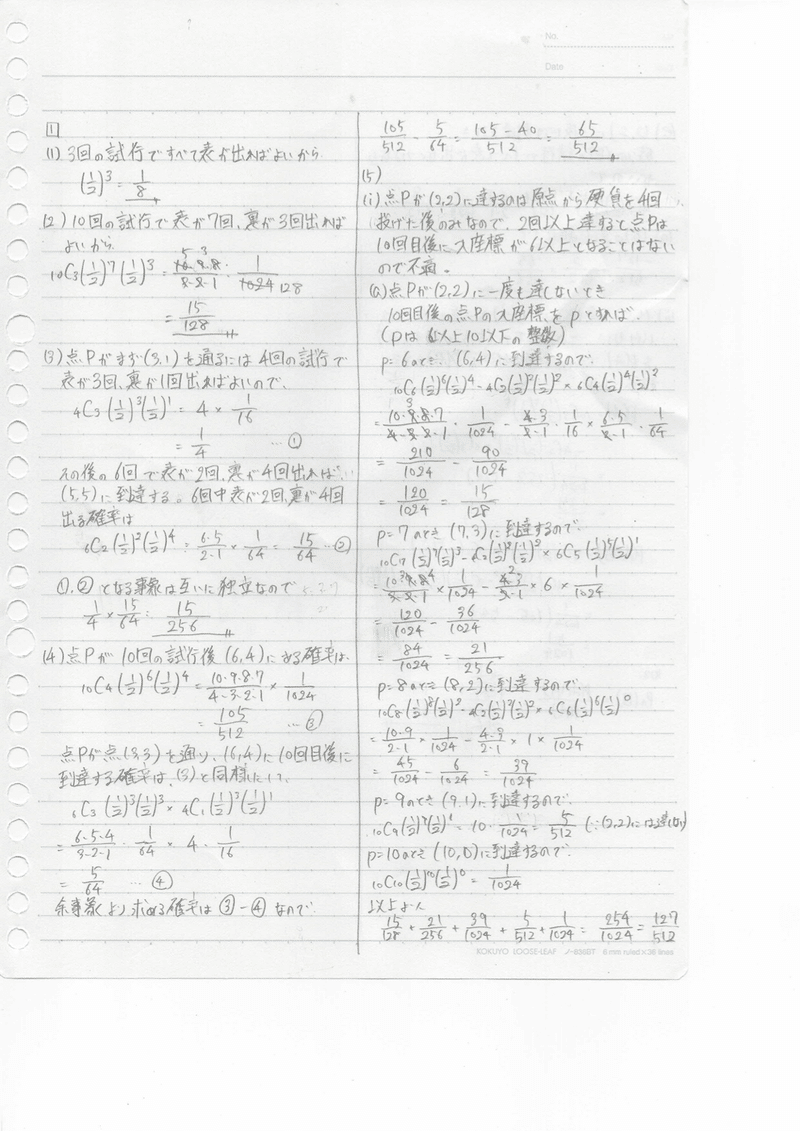 No.
Date
1
(1) 3回の試行ですべて表が出ればよいから
(1/2)^3 = 1/8
(2) 10回の試行で表が7回、裏が3回出れば
よいから
10C3(1/2)^7(1/2)^3 = 10・9・8/3・2・1 × 1/1024
= 15/128
(3) 点Pがまず(3,1)を通るには4回の試行で
表が3回、裏が1回出ればよいので、
4C3(1/2)^3(1/2)^1 = 4 × 1/16
= 1/4 …①
その後の6回で表が2回、裏が4回出ればいい
(5,5)に到達する。6回中表が2回、裏が4回
出る確率は
6C2(1/2)^2(1/2)^4 = 6・5/2・1 × 1/64 = 15/64 …②
①,②となる事象は互いに独立なので
1/4 × 15/64 = 15/256
(4) 点Pが10回の試行後(6,4)にある確率は、
10C4(1/2)^6(1/2)^4 = 10・9・8・7/4・3・2・1 × 1/1024
= 105/512 …③
点Pが点(3,3)を通り、(6,4)に10回目後に
到達する確率は、(3)と同様にして、
6C3(1/2)^3(1/2)^3 × 4C1(1/2)^3(1/2)^1
= 6・5・4/3・2・1 ・ 1/64 ・ 4 ・ 1/16
= 5/64 …④
余事象より求める確率は③-④なので
105/512 - 5/64 = 105-40/512 = 65/512
(5)
(i) 点Pが(2,2)に達するのは原点から硬貨を4回
投げた後のみなので、2回以上達すると点Pは
10回目後にx座標が6以上となることはない
ので不適。
点Pが(2,2)に一度も達しないとき
10回目後の点Pのx座標をpとすれば、
(pは6以上10以下の整数)
p=6のとき、(6,4)に到達するので、
10C6(1/2)^6(1/2)^4 - 4C2(1/2)^2(1/2)^2 × 6C4(1/2)^4(1/2)^2
= 10・9・8・7/4・3・2・1 ・ 1/1024 - 4・3/2・1 ・ 1/16 × 6・5/2・1 ・ 1/64
= 210/1024 - 90/1024
= 120/1024 = 15/128
p=7のとき (7,3)に到達するので、
10C7(1/2)^7(1/2)^3 - 4C2(1/2)^2(1/2)^2 × 6C5(1/2)^5(1/2)^1
= 10・9・8/3・2・1 × 1/1024 - 4・3/2・1 × 6 × 1/1024
= 120/1024 - 36/1024
= 84/1024 = 21/256
p=8のとき (8,2)に到達するので、
10C8(1/2)^8(1/2)^2 - 4C2(1/2)^2(1/2)^2 × 6C6(1/2)^6(1/2)^0
= 10・9/2・1 × 1/1024 - 4・3/2・1 × 1 × 1/1024
= 45/1024 - 6/1024 = 39/1024
p=9のとき (9,1)に到達するので、
10C9(1/2)^9(1/2)^1 = 10・1/1024 = 5/512 (∵(2,2)には達しない)
p=10のとき (10,0)に到達するので、
10C10(1/2)^10(1/2)^0 = 1/1024
以上より
15/128 + 21/256 + 39/1024 + 5/512 + 1/1024 = 254/1024 = 127/512
KOKUYO LOOSE-LEAF ノ-836BT 6 mm ruled×36 lines